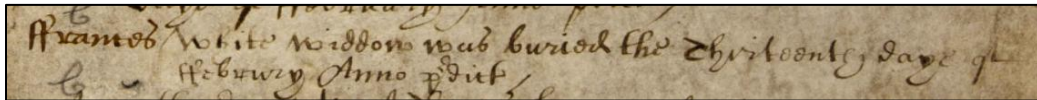 ffrances White widdow was buried the Thriteenth daye of
ffebrury Anno p^rdict